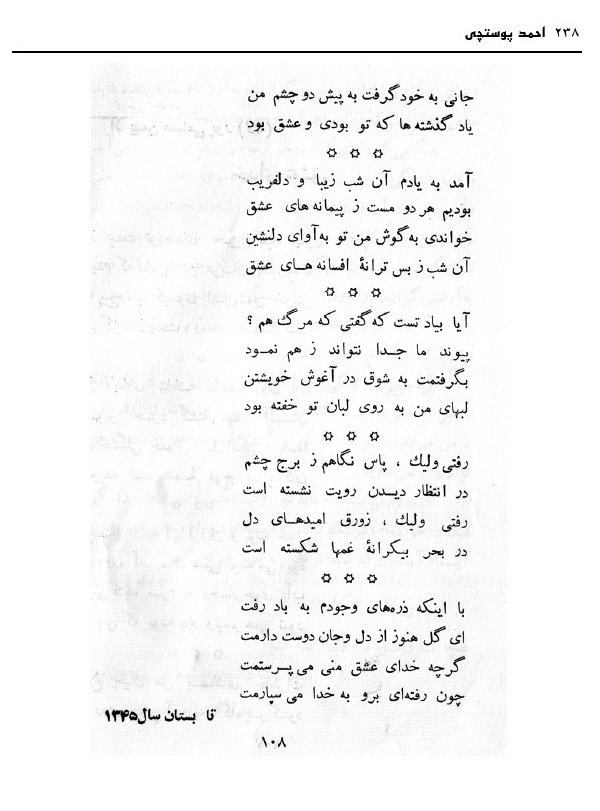 ۲۳۸ احمد پوستچی
جانی به خود گرفت به پیش دو چشم من
یاد گذشته ها که تو بودی و عشق بود
✡ ✡ ✡
آمد به یادم آن شب زیبا و دلفریب
بودیم هر دو مست ز پیمانه های عشق
خواندی به گوش من تو به آوای دلنشین
آن شب ز بس ترانهٔ افسانه هـای عشق
✡ ✡ ✡
آیا بیاد تست که گفتی که مرگ هم ؟
پیوند ما جـدا نتواند ز هم نمـود
بگرفتمت به شوق در آغوش خویشتن
لبهای من به روی لبان تو خفته بود
✡ ✡ ✡
رفتی ولیك ، پاس نگاهم ز برج چشم
در انتظار دیـدن رویت نشسته است
رفتی ولیك ، زورق امیدهـای دل
در بحر بیکرانهٔ غمها شکسته است
✡ ✡ ✡
با اینکه ذره‌های وجودم به باد رفت
ای گل هنوز از دل وجان دوست دارمت
گرچه خدای عشق منی می پـرستمت
چون رفته‌ای برو به خدا می سپارمت
تا بستان سال۱۳۴۵
۱۰۸